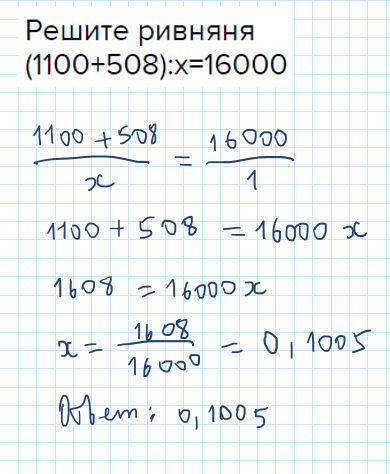 Решите ривняня
(1100+508):x=16000
1100 + 508 / x = 16000 / 1
1100 + 508 = 16000 x
1608 = 16000 x
x = 1608 / 16000 = 0,1005
Ответ: 0,1005